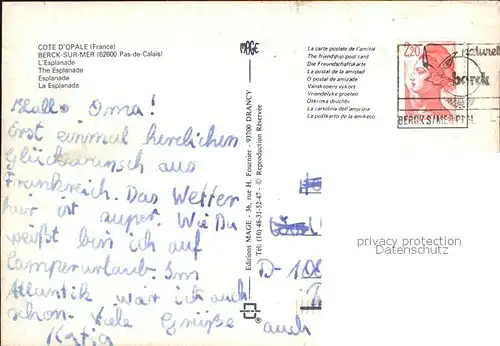 COTE D'OPALE (France)
BERCK-SUR-MER (62600 Pas-de-Calais)
L'Esplanade
The Esplanade
Esplanade
La Esplanada
Hallo Oma!
Erst einmal herzlichen
Glückwunsch aus
Frankreich. Das Wetter
hier ist super. Wie Du
weißt bin ich auf
Campurlaub. Im
Atlantik war ich auch
schon. Viele Grüße auch
Katja
MAGE
Editions MAGE - 36, rue H. Fournier - 93700 DRANCY
Tél. (16) 48-31-52-47 - © Reproduction Réservée
La carte postale de l'amitié
The friendship post card
Die Freundschaftskarte
La postal de la amistad
O postal de amizade
Vänskapens vykort
Vriendelijke groeten
Dətskiva družbiy
La cartolina dell'amicizia
La poŝtkarto de la amikeco
2,20
naturel
berck
BERCK S/MER PPAL
D-
privacy protection
Datenschutz